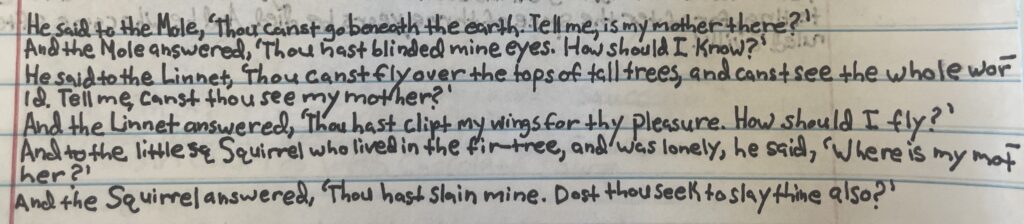 He said to the Mole, 'Thou canst go beneath the earth. Tell me, is my mother there?'
And the Mole answered, 'Thou hast blinded mine eyes. How should I know?'
He said to the Linnet, 'Thou canst fly over the tops of tall trees, and canst see the whole wor-
ld. Tell me, canst thou see my mother?'
And the Linnet answered, 'Thou hast clipt my wings for thy pleasure. How should I fly?'
And to the little sq Squirrel who lived in the fir-tree, and was lonely, he said, 'Where is my mot-
her?'
And the Squirrel answered, 'Thou hast slain mine. Dost thou seek to slay thine also?'